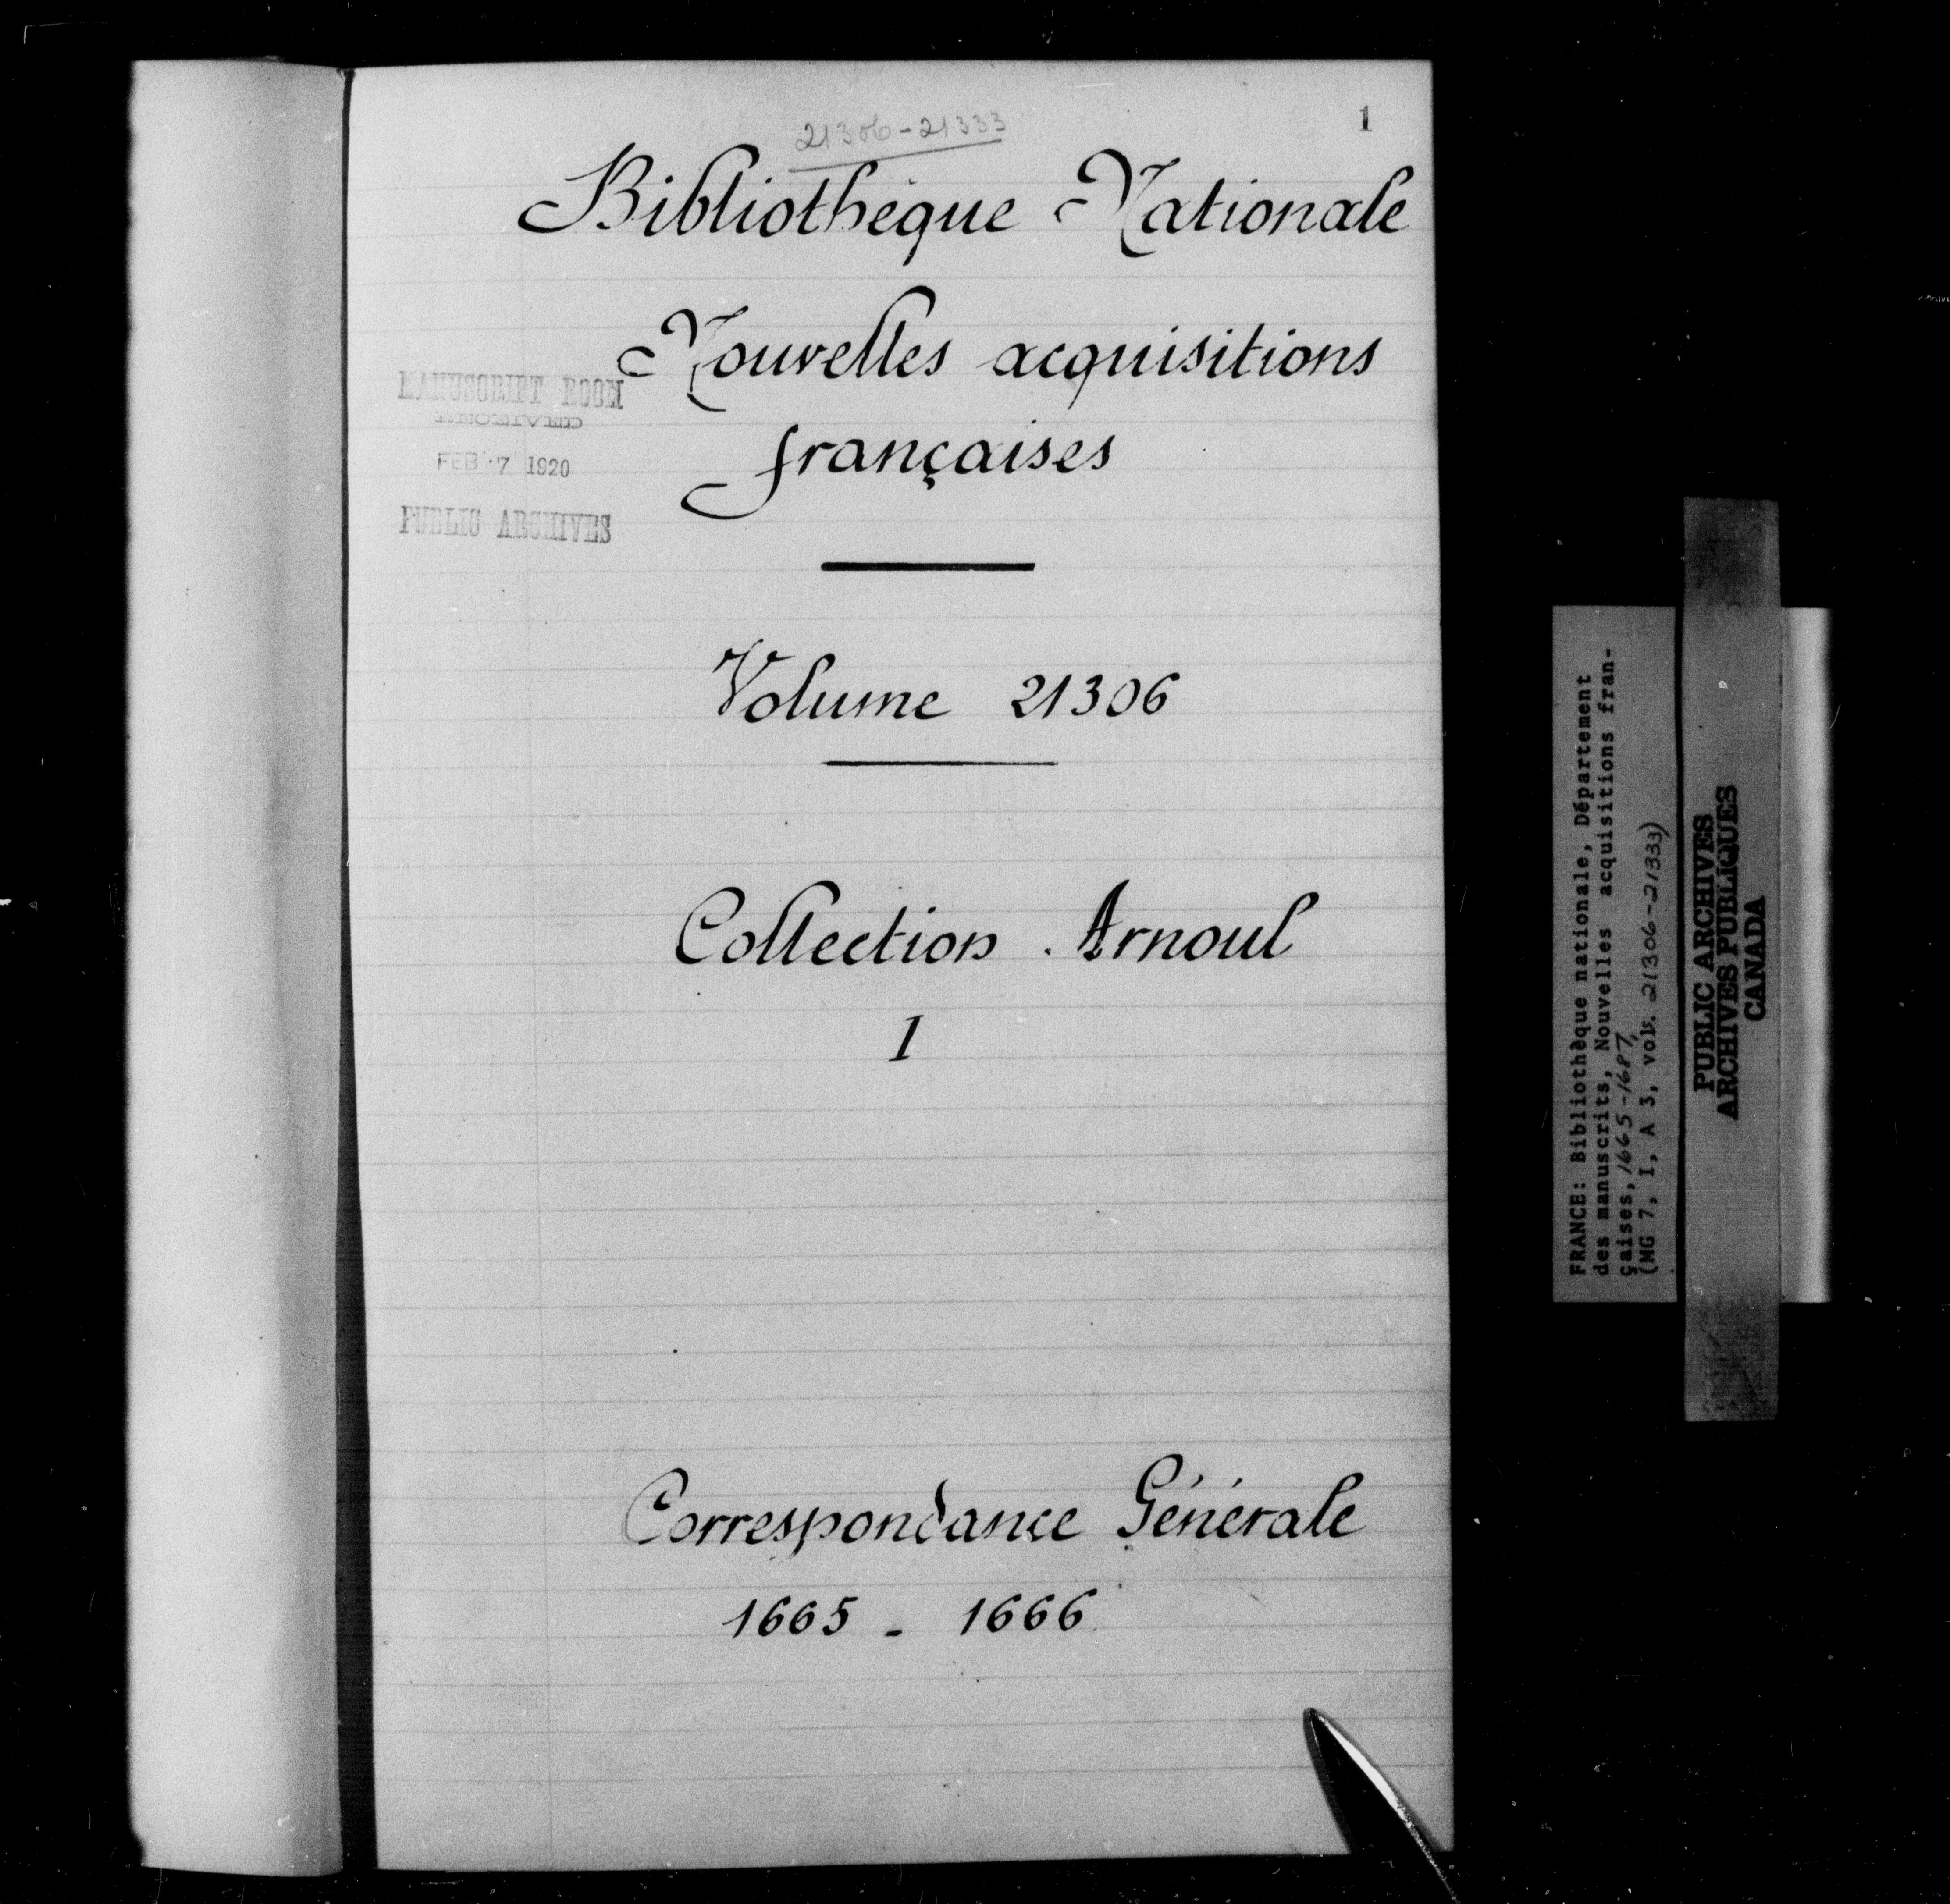 21306-21333
1
Bibliothèque Nationale
Nouvelles acquisitions
françaises
MANUSCRIPT ROOM
RECEIVED
FEB 7 1920
PUBLIC ARCHIVES
Volume 21306
Collection Arnoul
I
Correspondance Générale
1665 - 1666
FRANCE: Bibliothèque nationale, Département
des manuscrits, Nouvelles acquisitions fran-
çaises, 1665-1687,
(MG 7, I, A 3, vols. 21306-21333)
PUBLIC ARCHIVES
ARCHIVES PUBLIQUES
CANADA